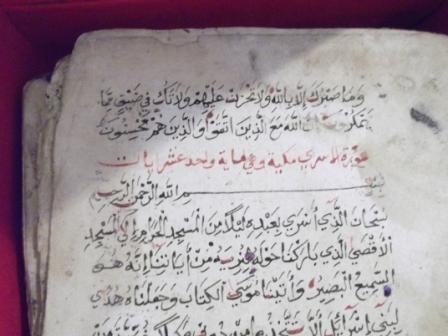 وَمَا صَبْرُكَ إِلَّا بِاللَّهِ وَلَا تَحْزَنْ عَلَيْهِمْ وَلَا تَكُ فِي ضَيْقٍ مِمَّا
يَمْكُرُونَ إِنَّ اللَّهَ مَعَ الَّذِينَ اتَّقَوْا وَالَّذِينَ هُمْ مُحْسِنُونَ
سورة الاسرى مكية وهي ماية واحد عشر ايات
بسم الله الرَّحْمَنِ الرَّحِيمِ
سُبْحَانَ الَّذِي أَسْرَى بِعَبْدِهِ لَيْلًا مِنَ الْمَسْجِدِ الْحَرَامِ إِلَى الْمَسْجِدِ
الْأَقْصَى الَّذِي بَارَكْنَا حَوْلَهُ لِنُرِيَهُ مِنْ آيَاتِنَا إِنَّهُ هُوَ
السَّمِيعُ الْبَصِيرُ وَآتَيْنَا مُوسَى الْكِتَابَ وَجَعَلْنَاهُ هُدًى
لِبَنِي إِسْرَائِيلَ أَلَّا تَتَّخِذُوا مِنْ دُونِي